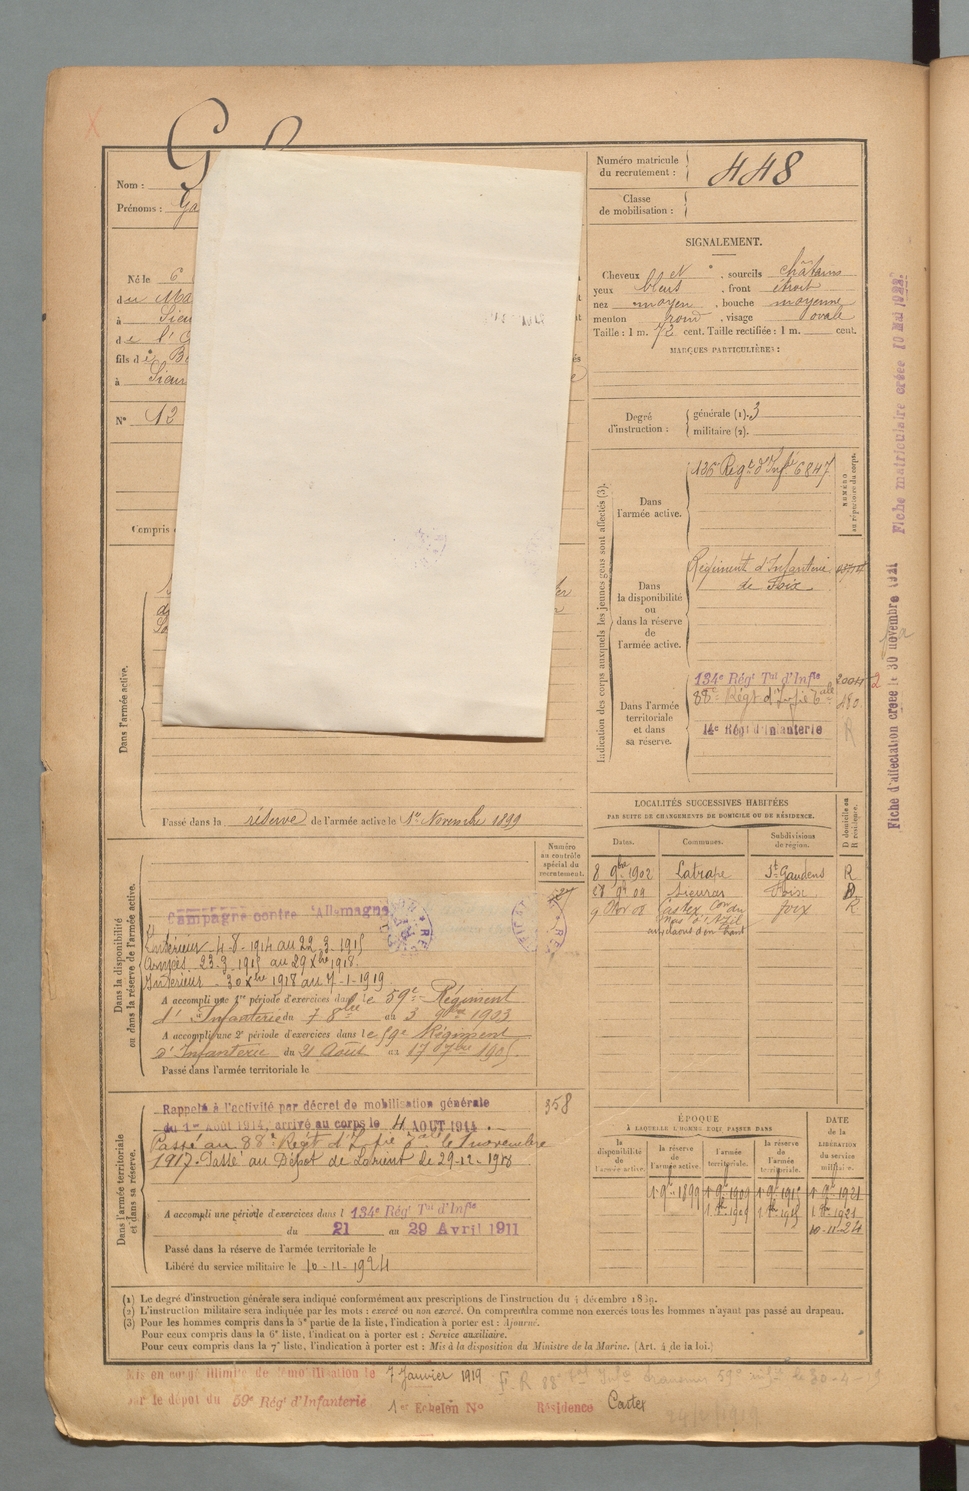 G
Nom :
Prénoms : Ga
Né le 6
du Ma
à Sieu
de l'
fils de Be
à Sieur
N° 12
Compris
Dans l'armée active.
Passé dans la réserve de l'armée active le 1er Novembre 1899
Numéro matricule du recrutement : 448
Classe de mobilisation :
SIGNALEMENT.
Cheveux et sourcils châtains
yeux bleus, front étroit
nez moyen, bouche moyenne
menton rond, visage ovale
Taille : 1 m. 72 cent. Taille rectifiée : 1 m. cent.
MARQUES PARTICULIÈRES :
Degré d'instruction : générale (1). 3
militaire (2).
Indication des corps auxquels les jeunes gens sont affectés (3).
NUMÉRO au répertoire du corps.
Dans l'armée active.
136e Régt d'Infie 6847
Dans la disponibilité ou dans la réserve de l'armée active.
Régiment d'Infanterie
de Foix
Dans l'armée territoriale et dans sa réserve.
134e Régt Tal d'Infie
88e Régt d'Infie Tale 480
14e Régt d'Infanterie R
Fiche d'affectation créée le 30 novembre 1921
Fiche matriculaire créée 10 Mai 1922
LOCALITÉS SUCCESSIVES HABITÉES
PAR SUITE DE CHANGEMENTS DE DOMICILE OU DE RÉSIDENCE.
D domicile ou R résidence.
Dates. Communes. Subdivisions de région.
8 9bre 1902 Latrape St Gaudens R
Sieuras Foix D
Castex Foix R
Dans la disponibilité ou dans la réserve de l'armée active.
Numéro au contrôle spécial du recrutement.
Campagne contre l'Allemagne
Intérieur 4-8-1914 au 22-3-1915
Armées 23-3-1915 au 29 Xbre 1918.
Intérieur 30 Xbre 1918 au 7-1-1919
A accompli une 1re période d'exercices dans le 59e Régiment
d'Infanterie du 7 8bre au 3 9bre 1903
A accompli une 2e période d'exercices dans le 59e Régiment
d'Infanterie du 21 Août au 17 7bre 1905.
Passé dans l'armée territoriale le
Dans l'armée territoriale et dans sa réserve.
Rappelé à l'activité par décret de mobilisation générale 358
du 1er Août 1914, arrivé au corps le 4 AOUT 1914.
Passé au 88e Régt d'Infie Tale le 1 novembre
1917. Passé au Dépôt de Lorient le 29-12-1918
A accompli une période d'exercices dans l 134e Régt Tal d'Infie
du 21 au 29 Avril 1911
Passé dans la réserve de l'armée territoriale le
Libéré du service militaire le 10-11-1924
ÉPOQUE
À LAQUELLE L'HOMME DOIT PASSER DANS
DATE de la LIBÉRATION du service militaire.
la disponibilité de l'armée active. la réserve de l'armée active. l'armée territoriale. la réserve de l'armée territoriale.
1 9bre 1899 1 9bre 1909 1 9bre 1915 1 9bre 1921
10-11-24
(1) Le degré d'instruction générale sera indiqué conformément aux prescriptions de l'instruction du 4 décembre 1889.
(2) L'instruction militaire sera indiquée par les mots : exercé ou non exercé. On comprendra comme non exercés tous les hommes n'ayant pas passé au drapeau.
(3) Pour les hommes compris dans la 5e partie de la liste, l'indication à porter est : Ajourné.
Pour ceux compris dans la 6e liste, l'indication à porter est : Service auxiliaire.
Pour ceux compris dans la 7e liste, l'indication à porter est : Mis à la disposition du Ministre de la Marine. (Art. 4 de la loi.)
Mis en congé illimité de démobilisation le 7 Janvier 1919
par le dépôt du 59e Régt d'Infanterie 1er Echelon N° Résidence Castex